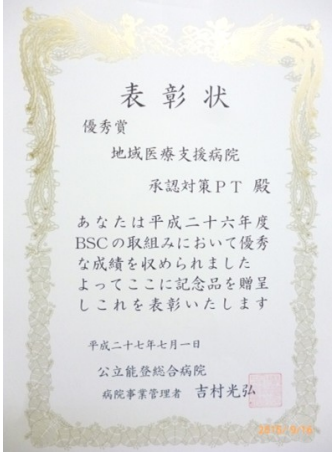 表彰状
優秀賞
地域医療支援病院
承認対策PT 殿
あなたは平成二十六年度
BSCの取組みにおいて優秀
な成績を収められました
よってここに記念品を贈呈
しこれを表彰いたします
平成二十七年七月一日
公立能登総合病院
病院事業管理者 吉村光弘